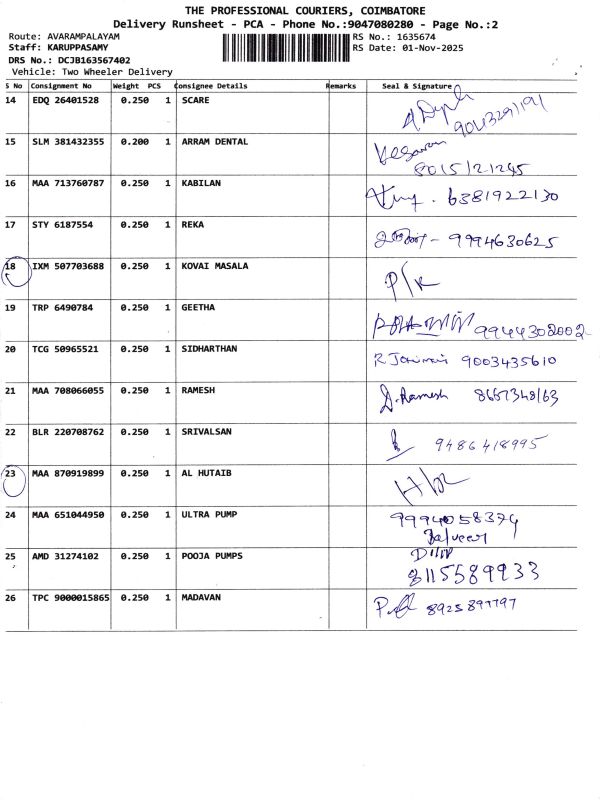 THE PROFESSIONAL COURIERS, COIMBATORE
Delivery Runsheet - PCA - Phone No.:9047080280 - Page No.:2
Route: AVARAMPALAYAM RS No.: 1635674
Staff: KARUPPASAMY RS Date: 01-Nov-2025
DRS No.: DCJB163567402
Vehicle: Two Wheeler Delivery
S No Consignment No Weight PCS Consignee Details Remarks Seal & Signature
14 EDQ 26401528 0.250 1 SCARE
15 SLM 381432355 0.200 1 ARRAM DENTAL 8015121245
16 MAA 713760787 0.250 1 KABILAN 6381922130
17 STY 6187554 0.250 1 REKA 9994630625
18 IXM 507703688 0.250 1 KOVAI MASALA P/K
19 TRP 6490784 0.250 1 GEETHA 9944308002
20 TCG 50965521 0.250 1 SIDHARTHAN 9003435610
21 MAA 708066055 0.250 1 RAMESH D.Ramesh 8667348163
22 BLR 220708762 0.250 1 SRIVALSAN 9486418995
23 MAA 870919899 0.250 1 AL HUTAIB
24 MAA 651044950 0.250 1 ULTRA PUMP 9994058374
25 AMD 31274102 0.250 1 POOJA PUMPS Dilip
8115589933
26 TPC 9000015865 0.250 1 MADAVAN 8925897797